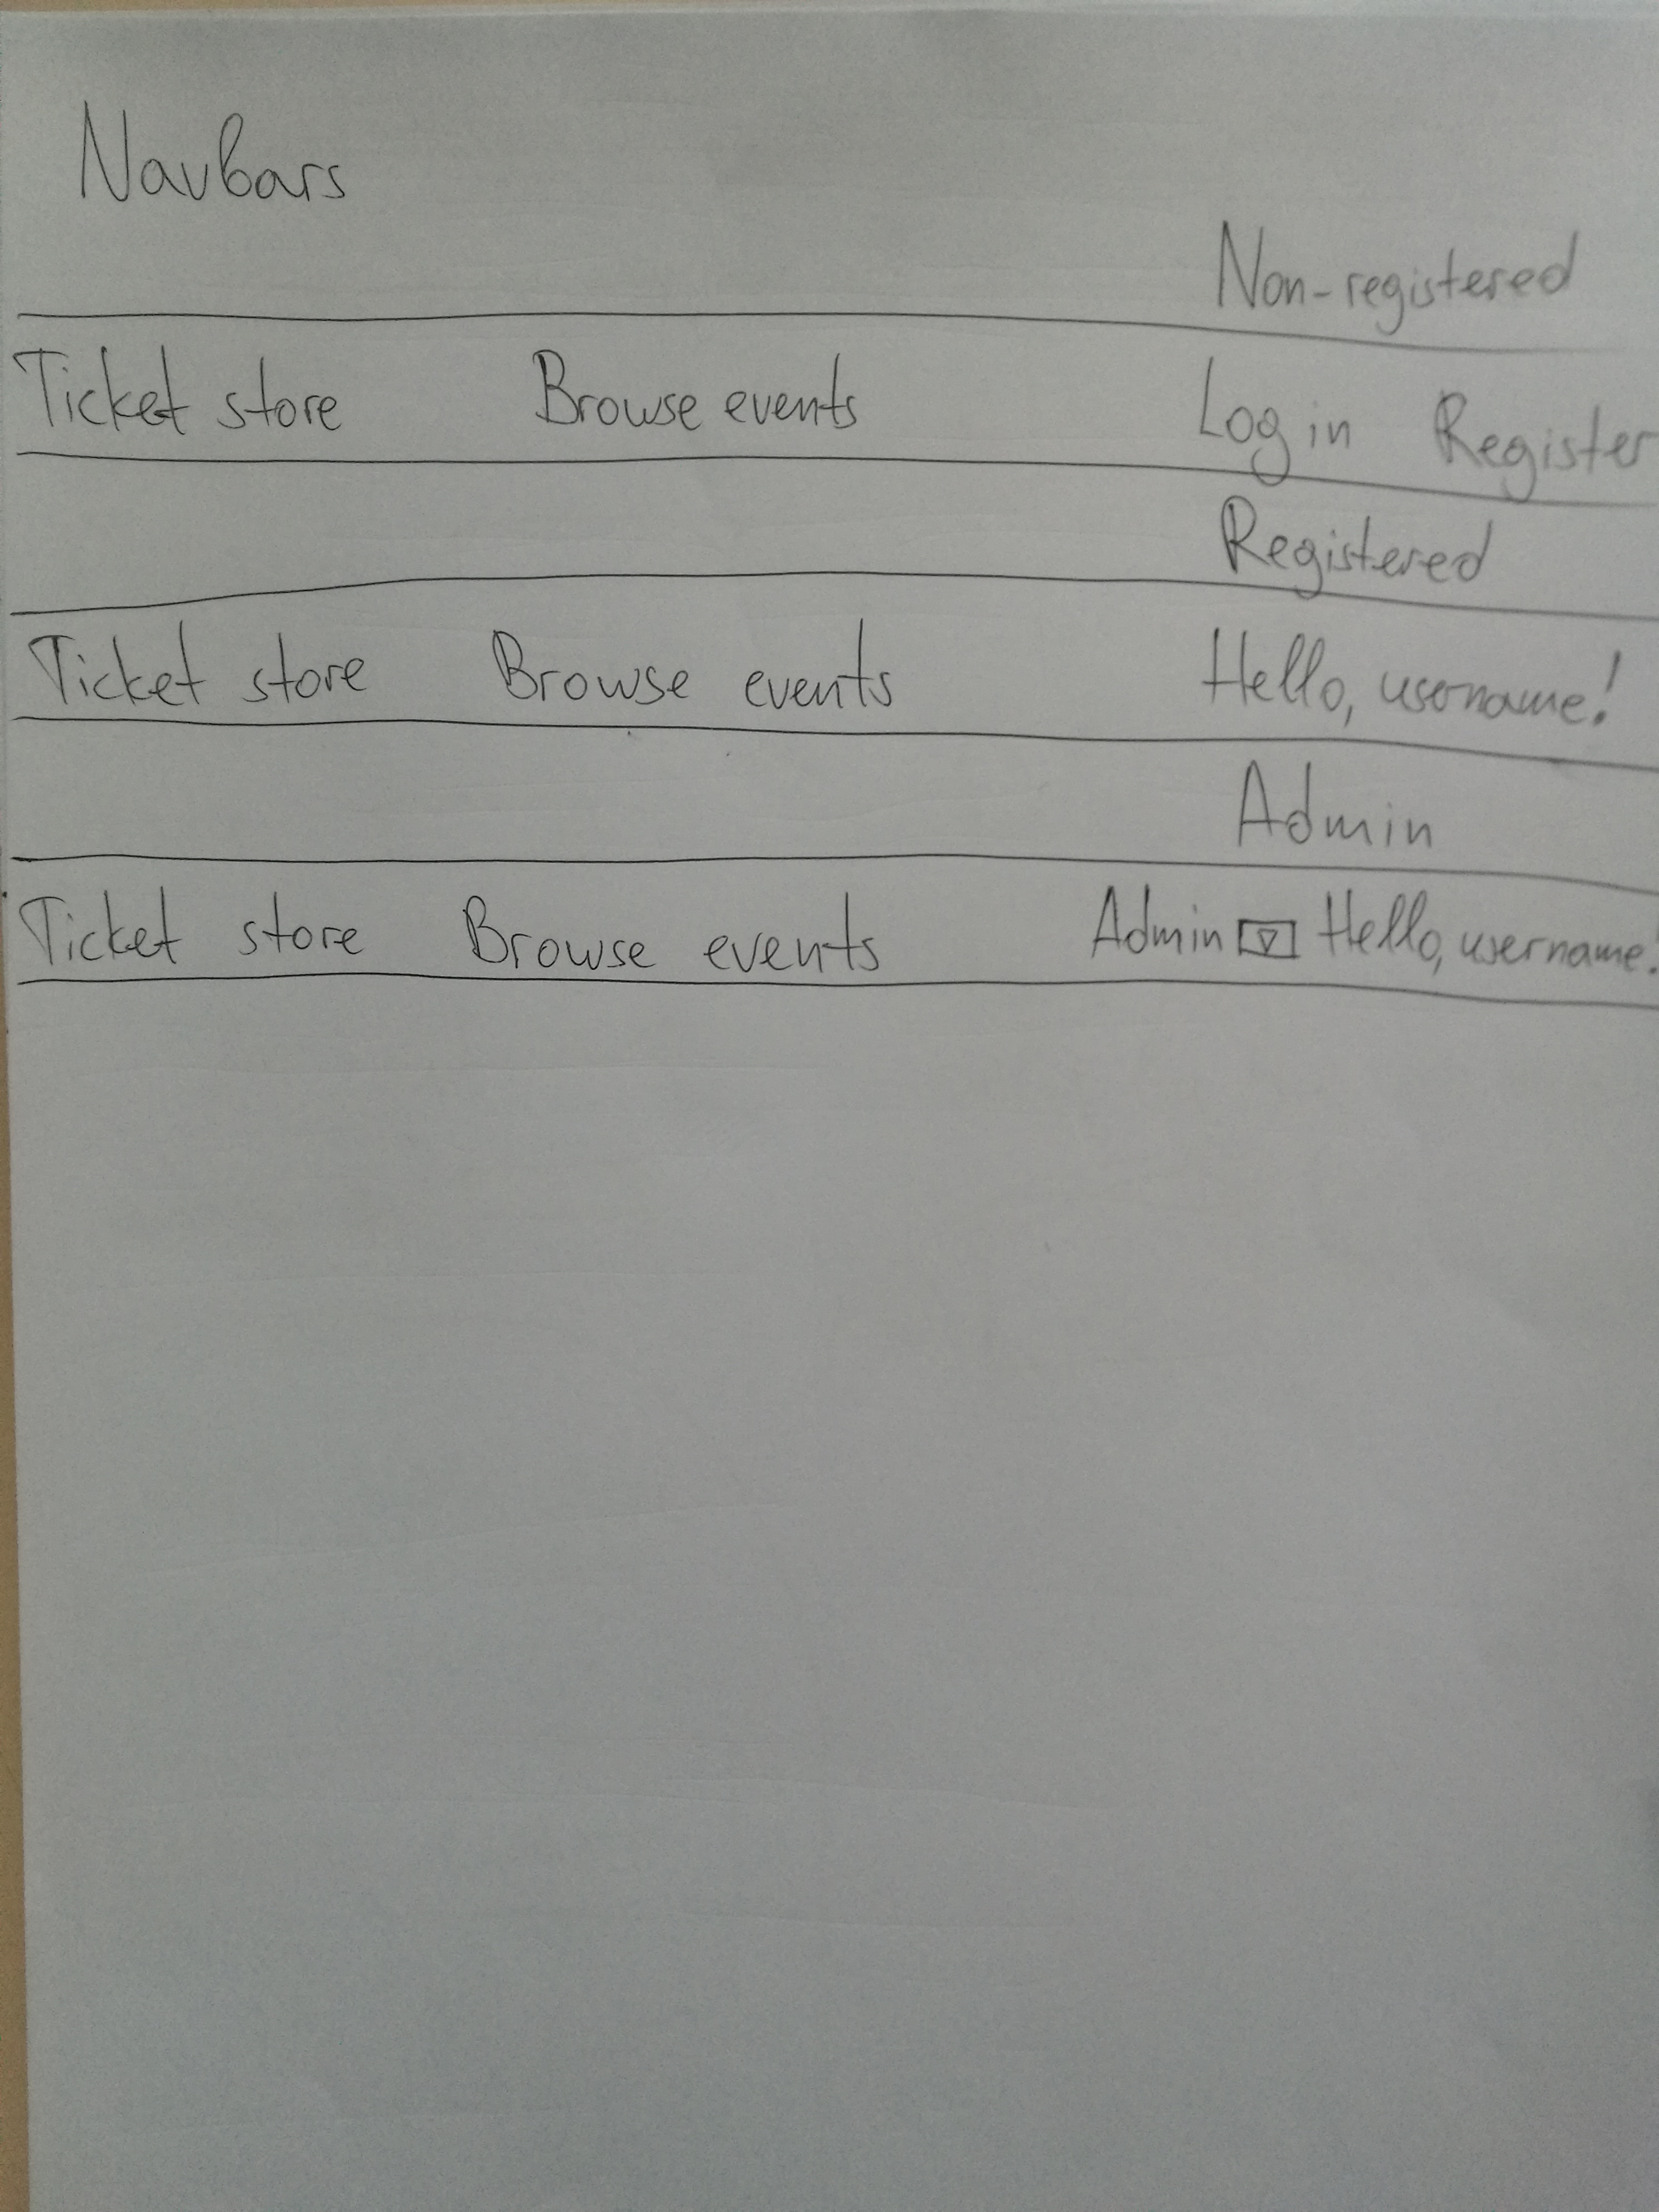 Navbars
Non-registered
Ticket store Browse events Log in Register
Registered
Ticket store Browse events Hello, username!
Admin
Ticket store Browse events Admin Hello, username!